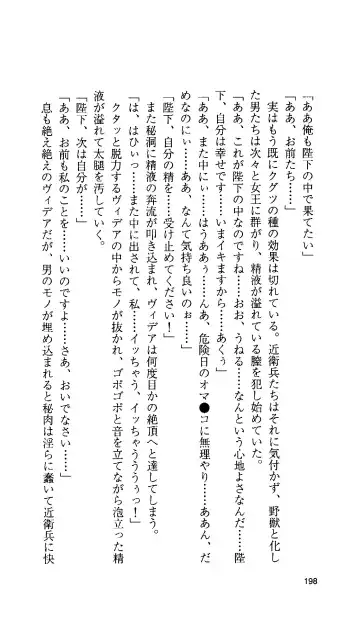 「ああ俺も陛下の中で果てたい」
「ああ、お前たち……」
実はもう既にクグツの種の効果は切れている。近衛兵たちはそれに気付かず、野獣と化し
た男たちは次々と女王に群がり、精液が溢れている膣を犯し始めていた。
「ああ、これが陛下の中なのですね……おお、うねる……なんという心地よさなんだ……陛
下、自分は幸せです……いまイキますから……あくぅ」
「ああ、また中にぃ……はうああぅ……んあ、危険日のオマ●コに無理やり……ああん、だ
めなのにぃ……ああ、なんて気持ち良いのぉ……」
「陛下、自分の精を……受け止めてください！」
また秘洞に精液の奔流が叩き込まれ、ヴィデアは何度目かの絶頂へと達してしまう。
「は、はひぃっ……また中に出されて、私……イッちゃう、イッちゃうううぅっ！」
クタッと脱力するヴィデアの中からモノが抜かれ、ゴボゴボと音を立てながら泡立った精
液が溢れて太腿を汚していく。
「陛下、次は自分が……」
「ああ、お前も私のことを……いいのですよ……さあ、おいでなさい……」
息も絶え絶えのヴィデアだが、男のモノが埋め込まれると秘肉は淫らに蠢いて近衛兵に快
198